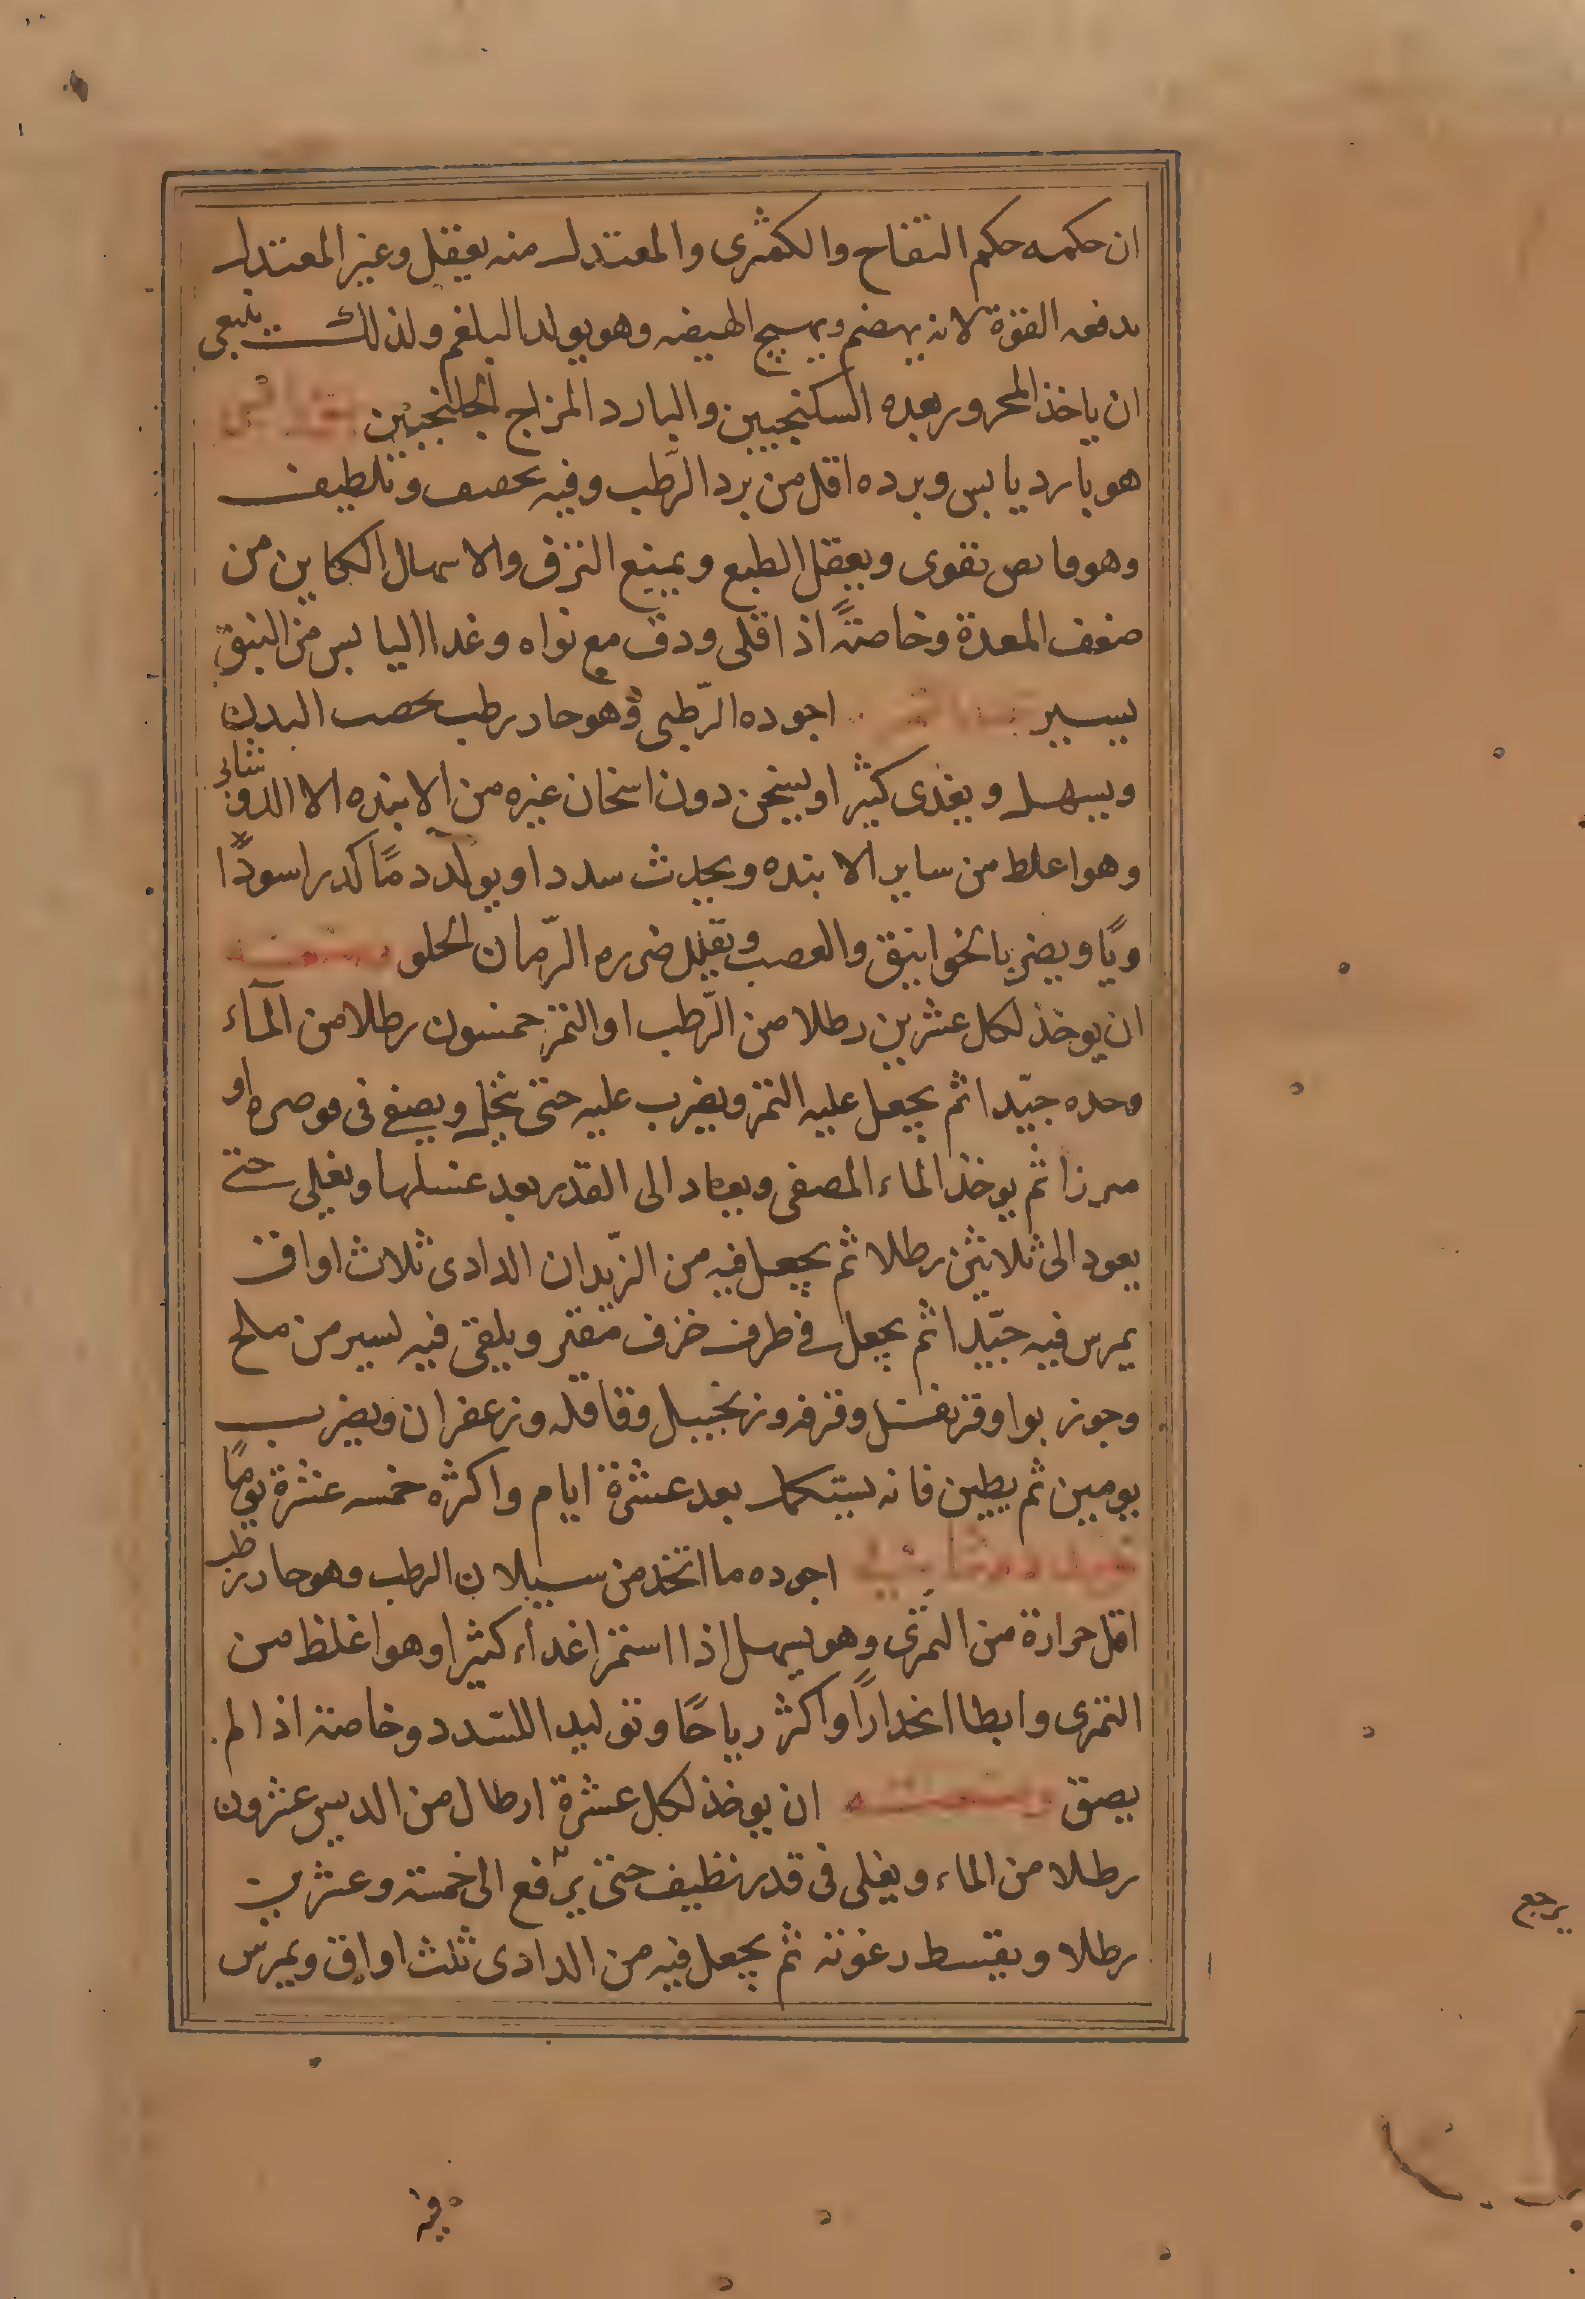 ان حكمه حكم التفاح والكمثرى والمعتدل منه يعقل وغير المعتدل
يدفعه القوة لانه يهضم ويهيج الهيضه وهو يولد البلغم ولذلك ينبغى
ان ياخذ المحرور بعده السكنجبين والبارد المزاج الجلنجبين
هو بارد يابس وبرده اقل من برد الرّطب وفيه تجفيف وتلطيف
وهو قابض يقوى ويعقل الطبع ويمنع النزف والاسهال الكاين من
ضعف المعدة وخاصةً اذا قلى ودق مع نواه وغذا اليابس من النبق
يسير اجوده الرّطبى وهو حار رطب يخصب البدن
ويسهل ويغذى كثيرا ويسخن دون اسخان غيره من الانبذه الا الدوشابى
وهو اغلظ من ساير الانبذه ويحدث سددا ويولد دمًا كدرا سودا
ويًا ويضر بالخوانيق والعصب ويقلل ضرره الرّمان الحلو
ان يوخذ لكل عشرين رطلا من الرّطب او التمر خمسون رطلا من المآء
وحده جيّدا ثم يجعل عليه التمر ويضرب عليه حتى ينحل ويصفى فى قوصره او
مرزا ثم يوخذ الماء المصفى ويعاد الى القدر بعد غسلها ويغلى حتى
يعود الى ثلاثين رطلا ثم يجعل فيه من الزّبدان الدادى ثلاث اواق
يمرس فيه جيّدا ثم يجعل فى ظرف خزف مقير ويلقى فيه يسير من ملح
وجوز بوا وقرنفل وقرفه وزنجبيل وقاقله وزعفران ويضرب
يومين ثم يطين فانه يستكمل بعد عشرة ايام واكثره خمسه عشرة يومًا
اجوده ما اتخذ من سيلان الرطب وهو حار رطب
اقل حرارة من التمرى وهو يسهل اذا استمرا غذاء كثيرا وهو اغلظ من
التمرى وابطا انحدارًا واكثر رياحًا وتوليدا للسّدد وخاصة اذا لم
يصق وصنعته ان يوخذ لكل عشرة ارطال من الدبس عشرون
رطلا من الماء ويغلى فى قدر نظيف حتى يرّفع الى خمسة وعشرين
رطلا ويقسط رغوته ثم يجعل فيه من الدادى ثلث اواق ويمرس
فيه
يرجع